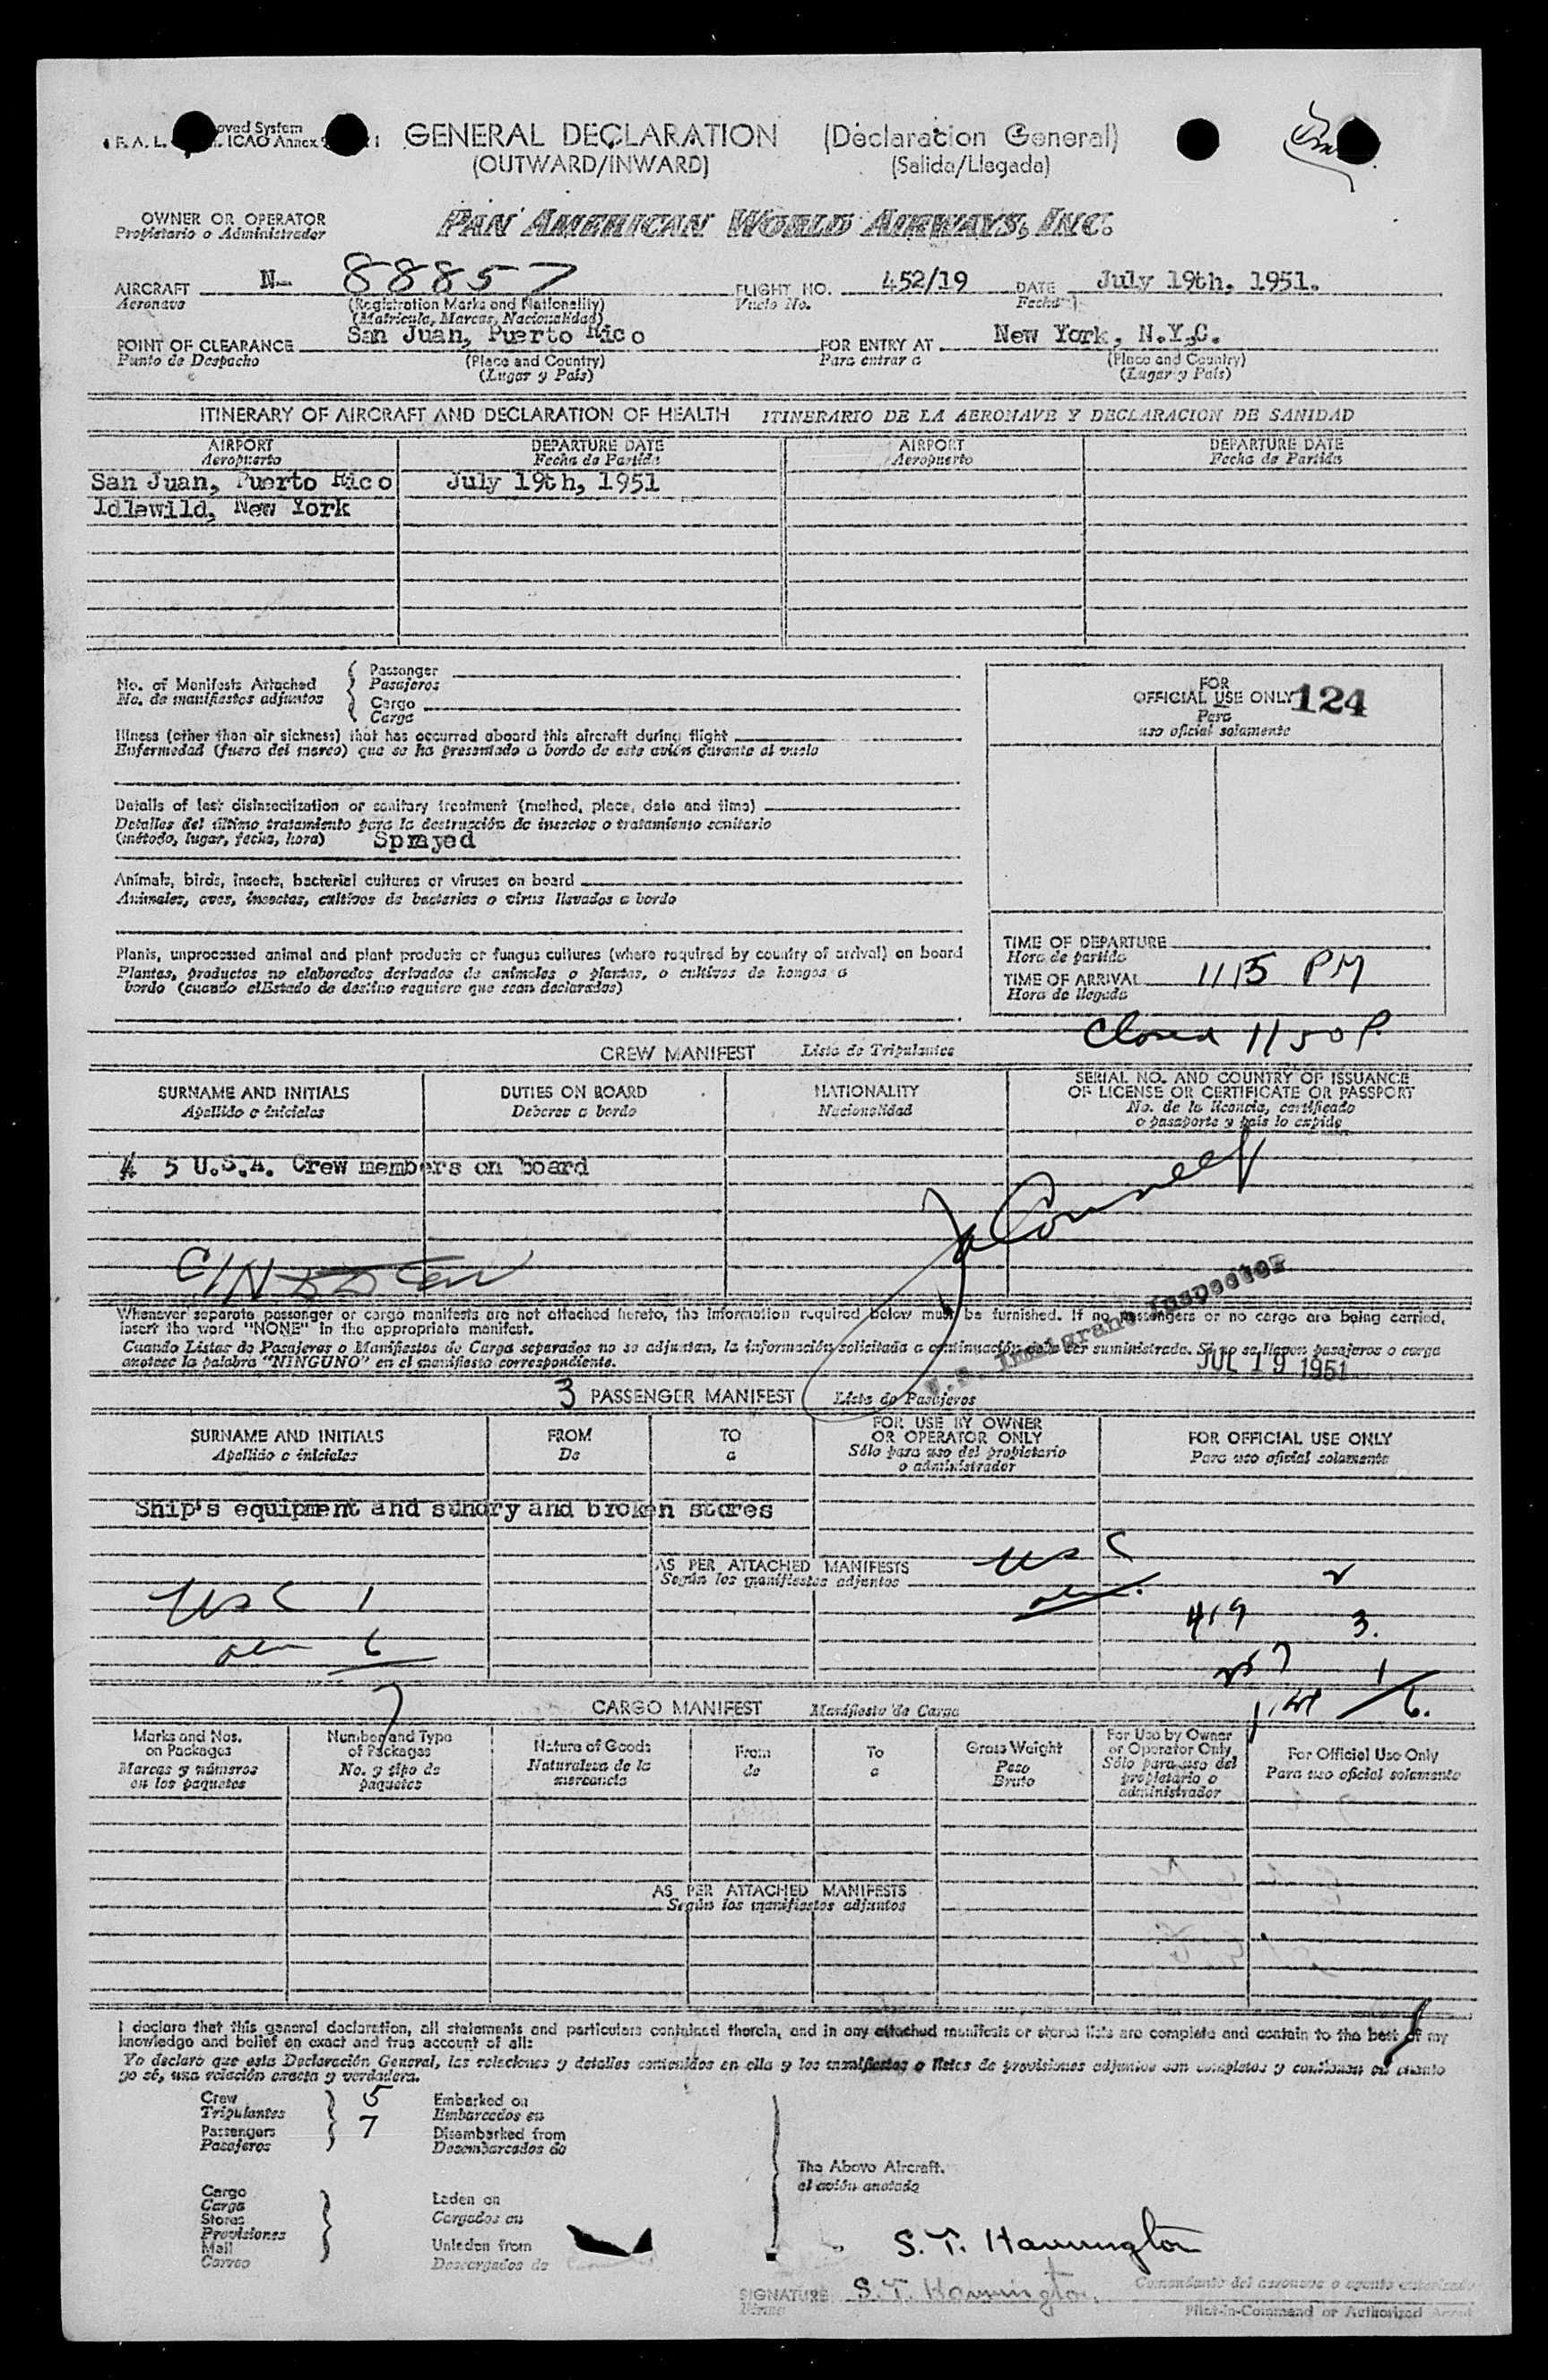 GENERAL DECLARATION (Declaracion General)
(OUTWARD/INWARD) (Salida/Llegada)
OWNER OR OPERATOR PAN AMERICAN WORLD AIRWAYS, INC.
Propietario o Administrador
AIRCRAFT N- 88857 FLIGHT NO. 452/19 DATE July 19th, 1951.
Aeronave (Registration Marks and Nationality) Vuelo No. Fecha
(Matricula, Marcas, Nacionalidad)
POINT OF CLEARANCE San Juan, Puerto Rico FOR ENTRY AT New York, N.Y.C.
Punto de Despacho (Place and Country) Para entrar a (Place and Country)
(Lugar y País) (Lugar y País)
ITINERARY OF AIRCRAFT AND DECLARATION OF HEALTH ITINERARIO DE LA AERONAVE Y DECLARACION DE SANIDAD
AIRPORT DEPARTURE DATE AIRPORT DEPARTURE DATE
Aeropuerto Fecha de Partida Aeropuerto Fecha de Partida
San Juan, Puerto Rico July 19th, 1951
Idlewild, New York
No. of Manifests Attached Passenger
No. de manifiestos adjuntos Pasajeros
Cargo
Carga
FOR
OFFICIAL USE ONLY 124
Para
uso oficial solamente
Illness (other than air sickness) that has occurred aboard this aircraft during flight
Enfermedad (fuera del mareo) que se ha presentado a bordo de este avión durante el vuelo
Details of last disinsectization or sanitary treatment (method, place, date and time)
Detalles del último tratamiento para la destrucción de insectos o tratamiento sanitario
(método, lugar, fecha, hora) Sprayed
Animals, birds, insects, bacterial cultures or viruses on board
Animales, aves, insectos, cultivos de bacterias o virus llevados a bordo
Plants, unprocessed animal and plant products or fungus cultures (where required by country of arrival) on board
Plantas, productos no elaborados derivados de animales o plantas, o cultivos de hongos a
bordo (cuando el Estado de destino requiere que sean declarados)
TIME OF DEPARTURE
Hora de partida
TIME OF ARRIVAL 1115 PM
Hora de llegada
Closed 1150 P.
CREW MANIFEST Lista de Tripulantes
SURNAME AND INITIALS DUTIES ON BOARD NATIONALITY SERIAL NO. AND COUNTRY OF ISSUANCE
OF LICENSE OR CERTIFICATE OR PASSPORT
Apellido e iniciales Deberes a bordo Nacionalidad No. de la licencia, certificado
o pasaporte y país lo expide
5 U.S.A. Crew members on board
Whenever separate passenger or cargo manifests are not attached hereto, the information required below must be furnished. If no passengers or no cargo are being carried,
insert the word "NONE" in the appropriate manifest.
Cuando Listas de Pasajeros o Manifiestos de Carga separados no se adjuntan, la información solicitada a continuación debe ser suministrada. Si no se llevan pasajeros o carga
anotese la palabra "NINGUNO" en el manifiesto correspondiente.
U.S. Immigrant Inspector
JUL 19 1951
3 PASSENGER MANIFEST Lista de Pasajeros
SURNAME AND INITIALS FROM TO FOR USE BY OWNER
OR OPERATOR ONLY FOR OFFICIAL USE ONLY
Apellido e iniciales De a Sólo para uso del propietario
o administrador Para uso oficial solamente
Ship's equipment and sundry and broken stores
AS PER ATTACHED MANIFESTS USC
Según los manifiestos adjuntos
USC 1
419 3.
6
7
1
6.
CARGO MANIFEST Manifiesto de Carga
Marks and Nos.
on Packages
Marcas y números
en los paquetes
Number and Type
of Packages
No. y tipo de
paquetes
Nature of Goods
Naturaleza de la
mercancia
From
de
To
a
Gross Weight
Peso
Bruto
For Use by Owner
or Operator Only
Sólo para uso del
propietario o
administrador
For Official Use Only
Para uso oficial solamente
AS PER ATTACHED MANIFESTS
Según los manifiestos adjuntos
I declare that this general declaration, all statements and particulars contained therein, and in any attached manifests or stores lists are complete and contain to the best of my
knowledge and belief an exact and true account of all:
Yo declaro que esta Declaración General, las relaciones y detalles contenidos en ella y los manifiestos o listas de provisiones adjuntos son completos y contienen en cuanto
yo sé, una relación exacta y verdadera.
Crew 5 Embarked on
Tripulantes Embarcados en
Passengers 7 Disembarked from
Pasajeros Desembarcados de
The Above Aircraft.
el avión anotado
Cargo
Carga Laden on
Stores Cargados en
Provisiones
Mail Unladen from
Correo Descargados de
S. T. Hannington
SIGNATURE S. T. Hannington
Firma
Comandante del aeronave o agente autorizado
Pilot-in-Command or Authorized Agent